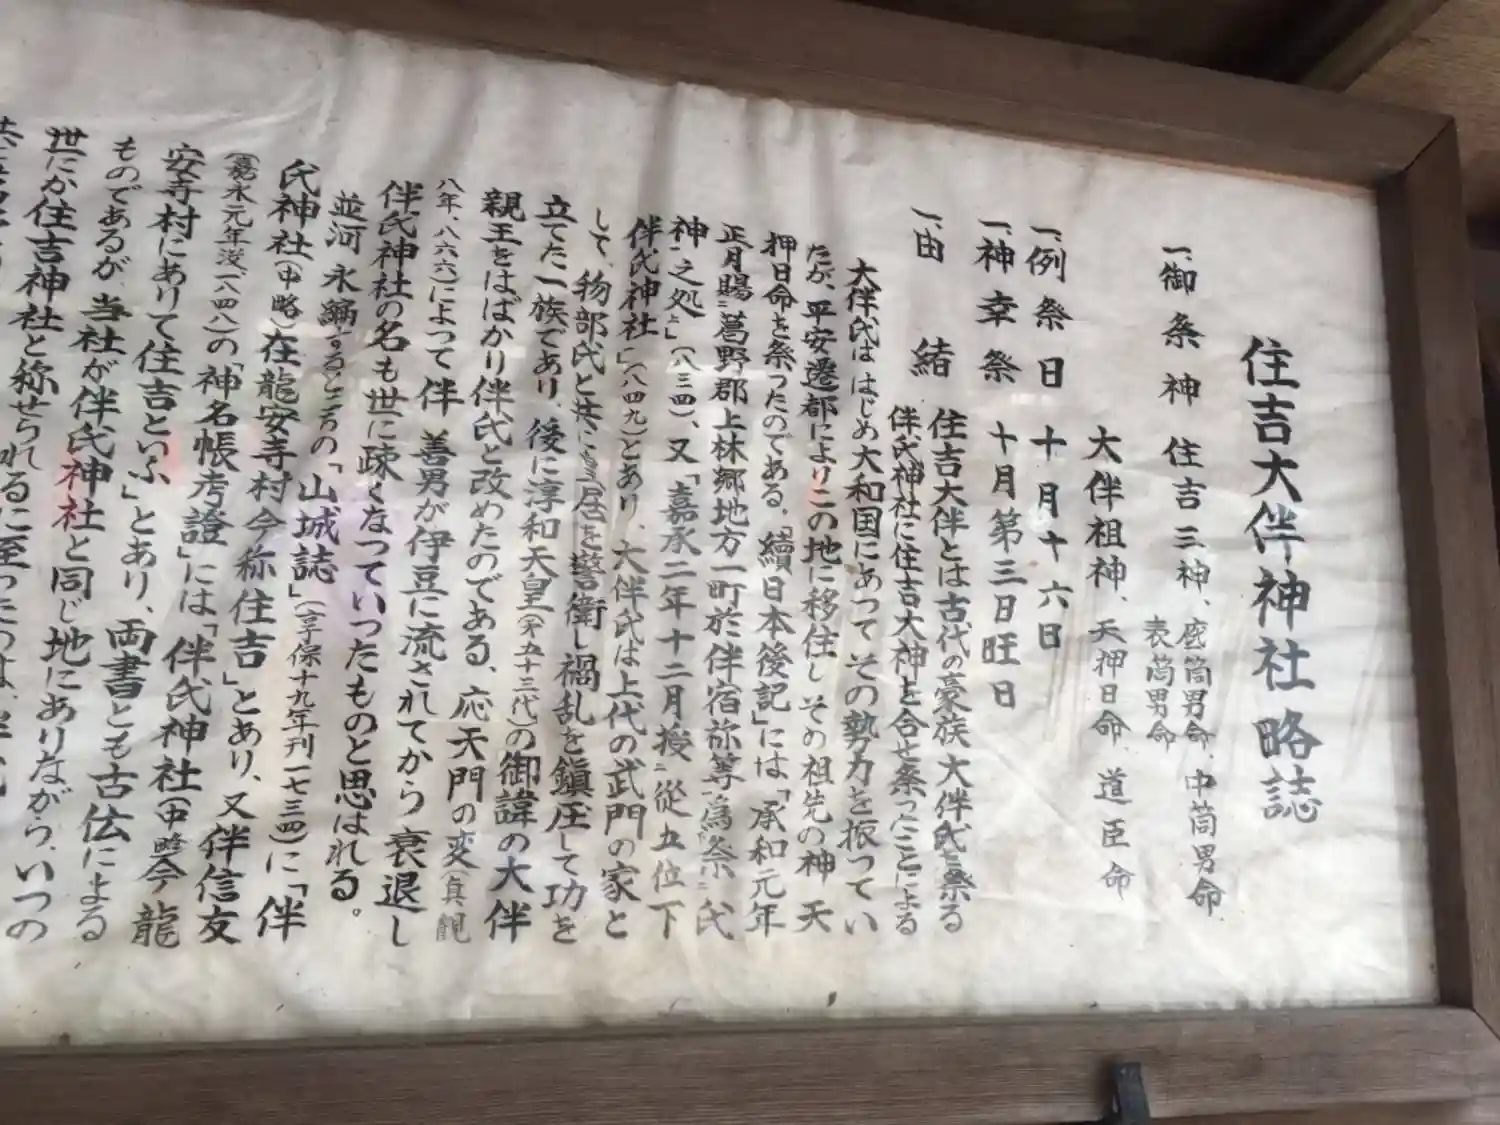 住吉大伴神社略誌
一、御祭神 住吉三神、底筒男命、中筒男命
表筒男命
大伴祖神、天押日命、道臣命
一、例祭日 十月十六日
一、神幸祭 十月第三日旺日
一、由 緒 住吉大伴とは古代の豪族大伴氏を祭る
伴氏神社に住吉大神を合せ祭ったことによる
大伴氏は はじめ大和国にあって その勢力を振ってい
たが、平安遷都によりこの地に移住し その祖先の神 天
押日命を祭ったのである。「續日本後記」には「承和元年
正月賜ニ葛野郡上林郷地方一町於伴宿祢等ニ為祭ニ氏
神之処ニ」(八三四)、又「嘉承二年十二月授ニ従五位下
伴氏神社ニ」(八四九)とあり、大伴氏は上代の武門の家と
して、物部氏と共に皇居を警衛し禍乱を鎮圧して功を
立てた一族であり、後に淳和天皇(第五十三代)の御諱の大伴
親王をはばかり伴氏と改めたのである、応天門の変(貞観
八年、八六六)によって伴 善男が伊豆に流されてから衰退し
伴氏神社の名も世に疎くなっていったものと思はれる。
並河 永 するところの「山城誌」(享保十九年刊一七三四)に「伴
氏神社(中略)在龍安寺村今称住吉」とあり、又伴信友
(嘉永元年没、一八四八)の「神名帳考證」には「伴氏神社(中略)今龍
安寺村にありて住吉といふ」とあり、両書とも古伝による
ものであるが、当社が伴氏神社と同じ地にありながら、いつの
世にか住吉神社と称せられるに至ったのは、